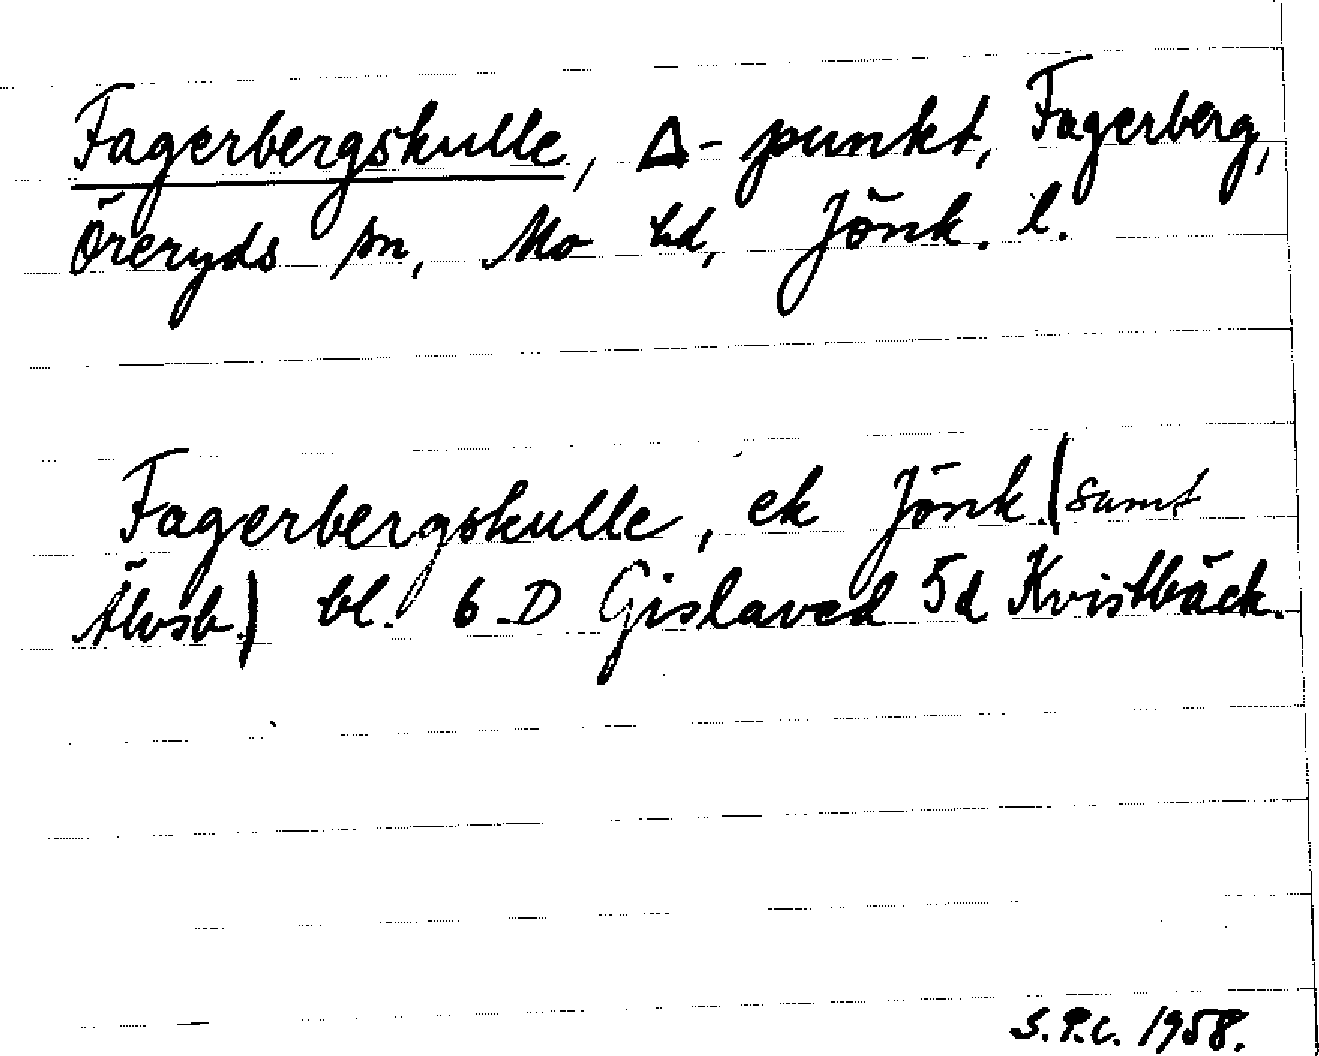 Fagerbergskulle, Δ-punkt, Fagerberg,
Öreryds sn, Mo hd, Jönk. l.
Fagerbergskulle, ek Jönk. (samt
Älvsb.) bl. 6 D Gislaved 5d Kvistbäck.
S.P.C. 1958.